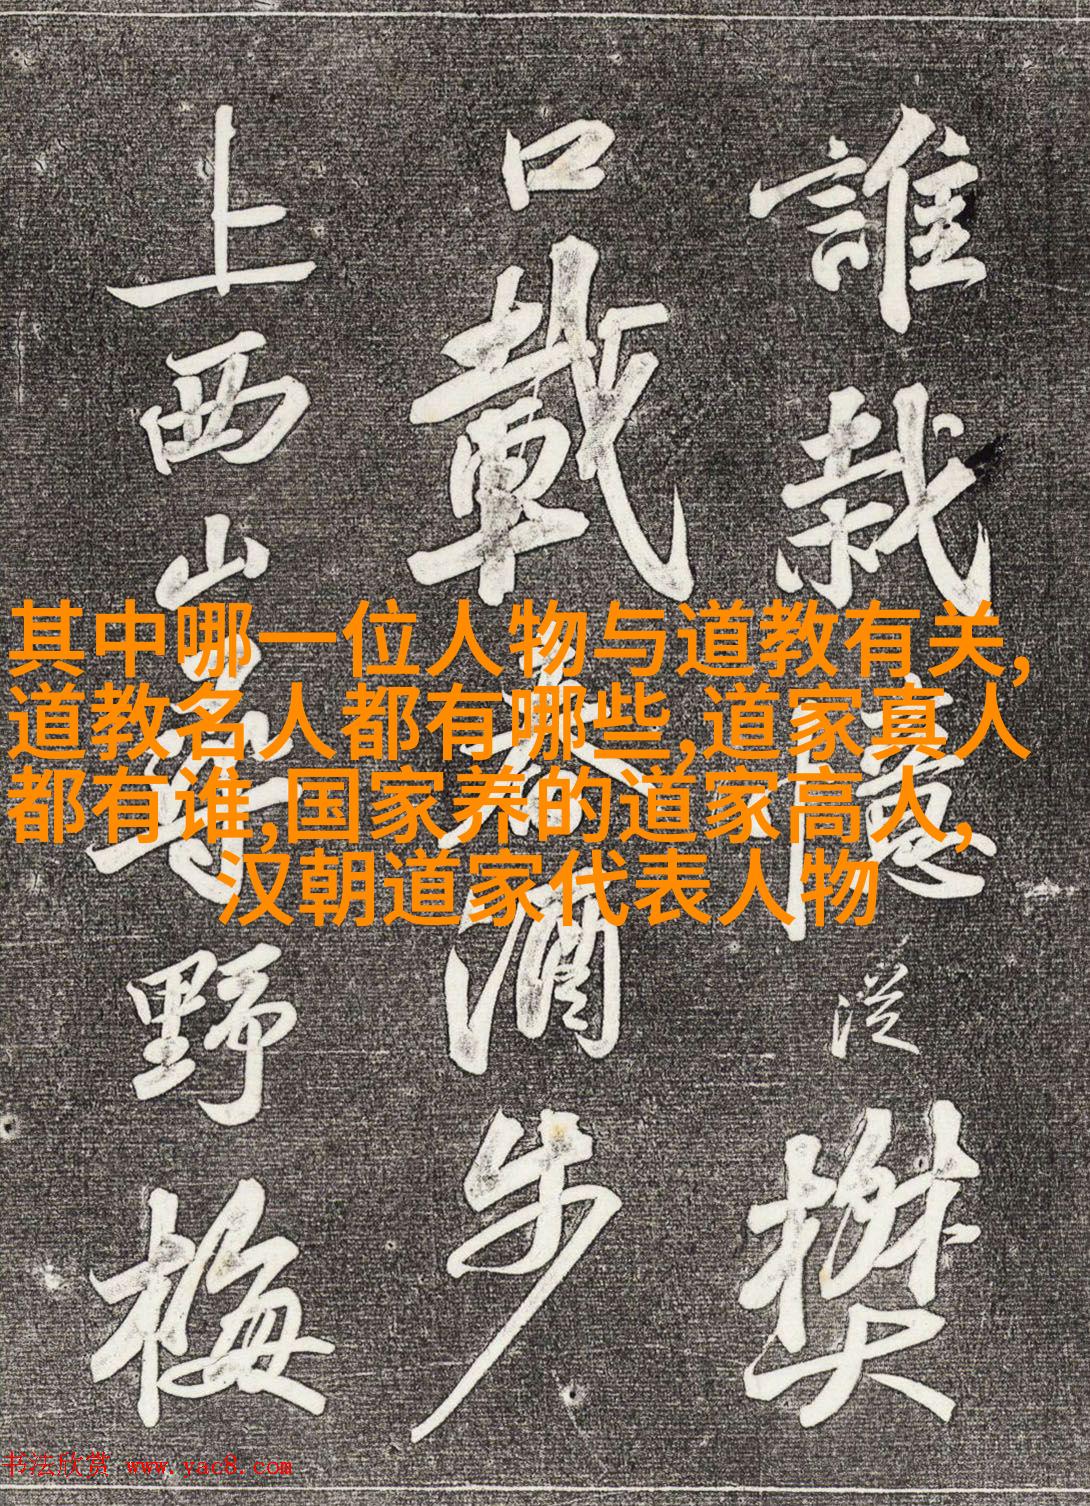 誰栽憶從樊
口載春酒步
上西山尋野梅
其中哪一位人物与道教有关,
道教名人都有哪些,道家真人
都有谁,国家养的道家高人,
汉朝道家代表人物
书法欣赏 www.yac8.com